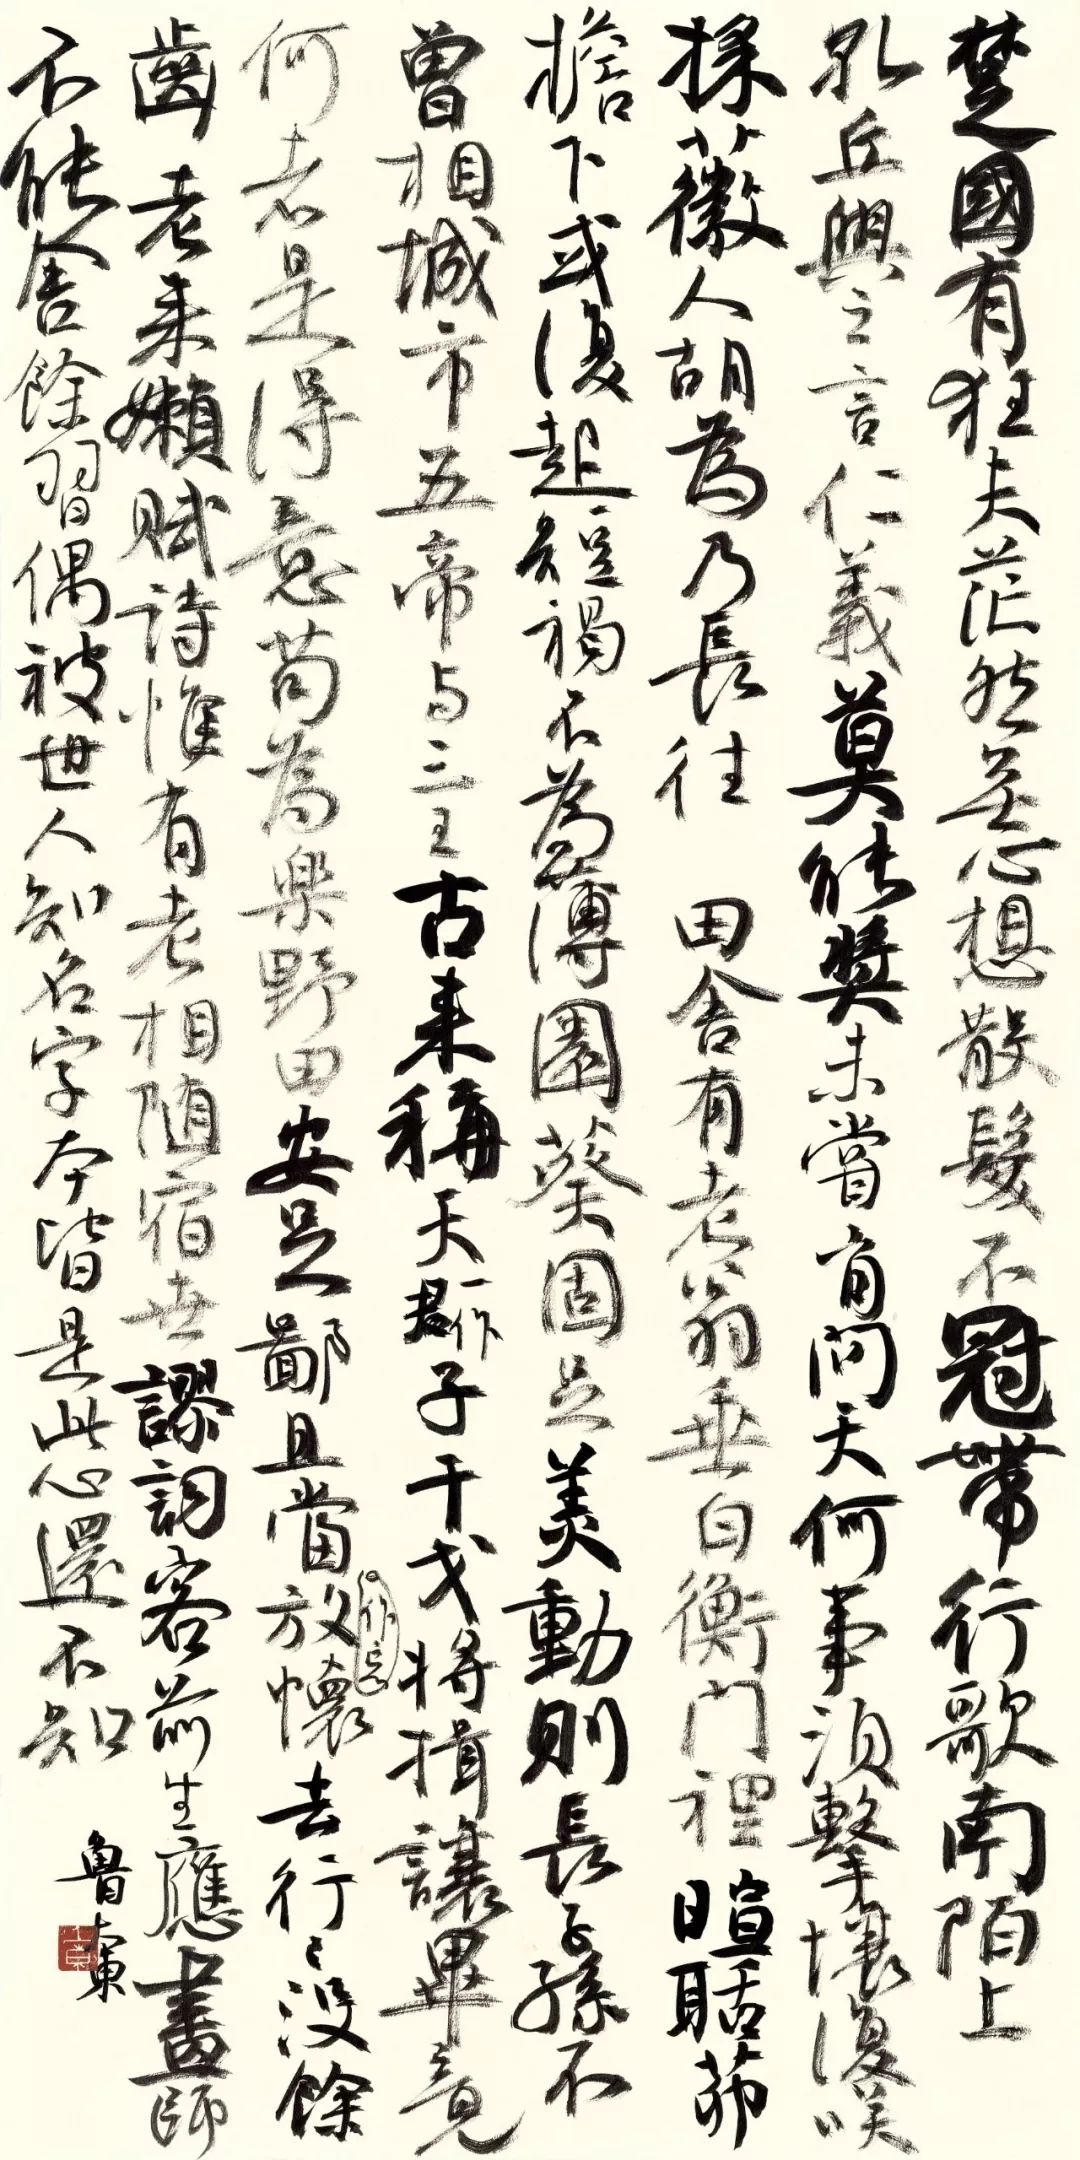 楚國有狂夫茫然無心想散髮不冠帶行歌南陌上
孔丘與之言仁義莫能獎未嘗肯問天何事須擊壤復笑
採薇人胡為乃長往 田舍有老翁垂白衡門裡 暄聒茆
檐下或復起短褐不為薄園葵固足美動則長子孫不
曾相城市五帝与三王古來稱天一作君子干戈將揖讓畢竟
何者是得意苟為樂野田安足鄙且當放一作忘懷去行行沒餘
齒 老来嬾賦詩惟有老相隨宿世謬詞客前生應畫師
不能舍餘習偶被世人知名字本皆是此心還不知
魯東